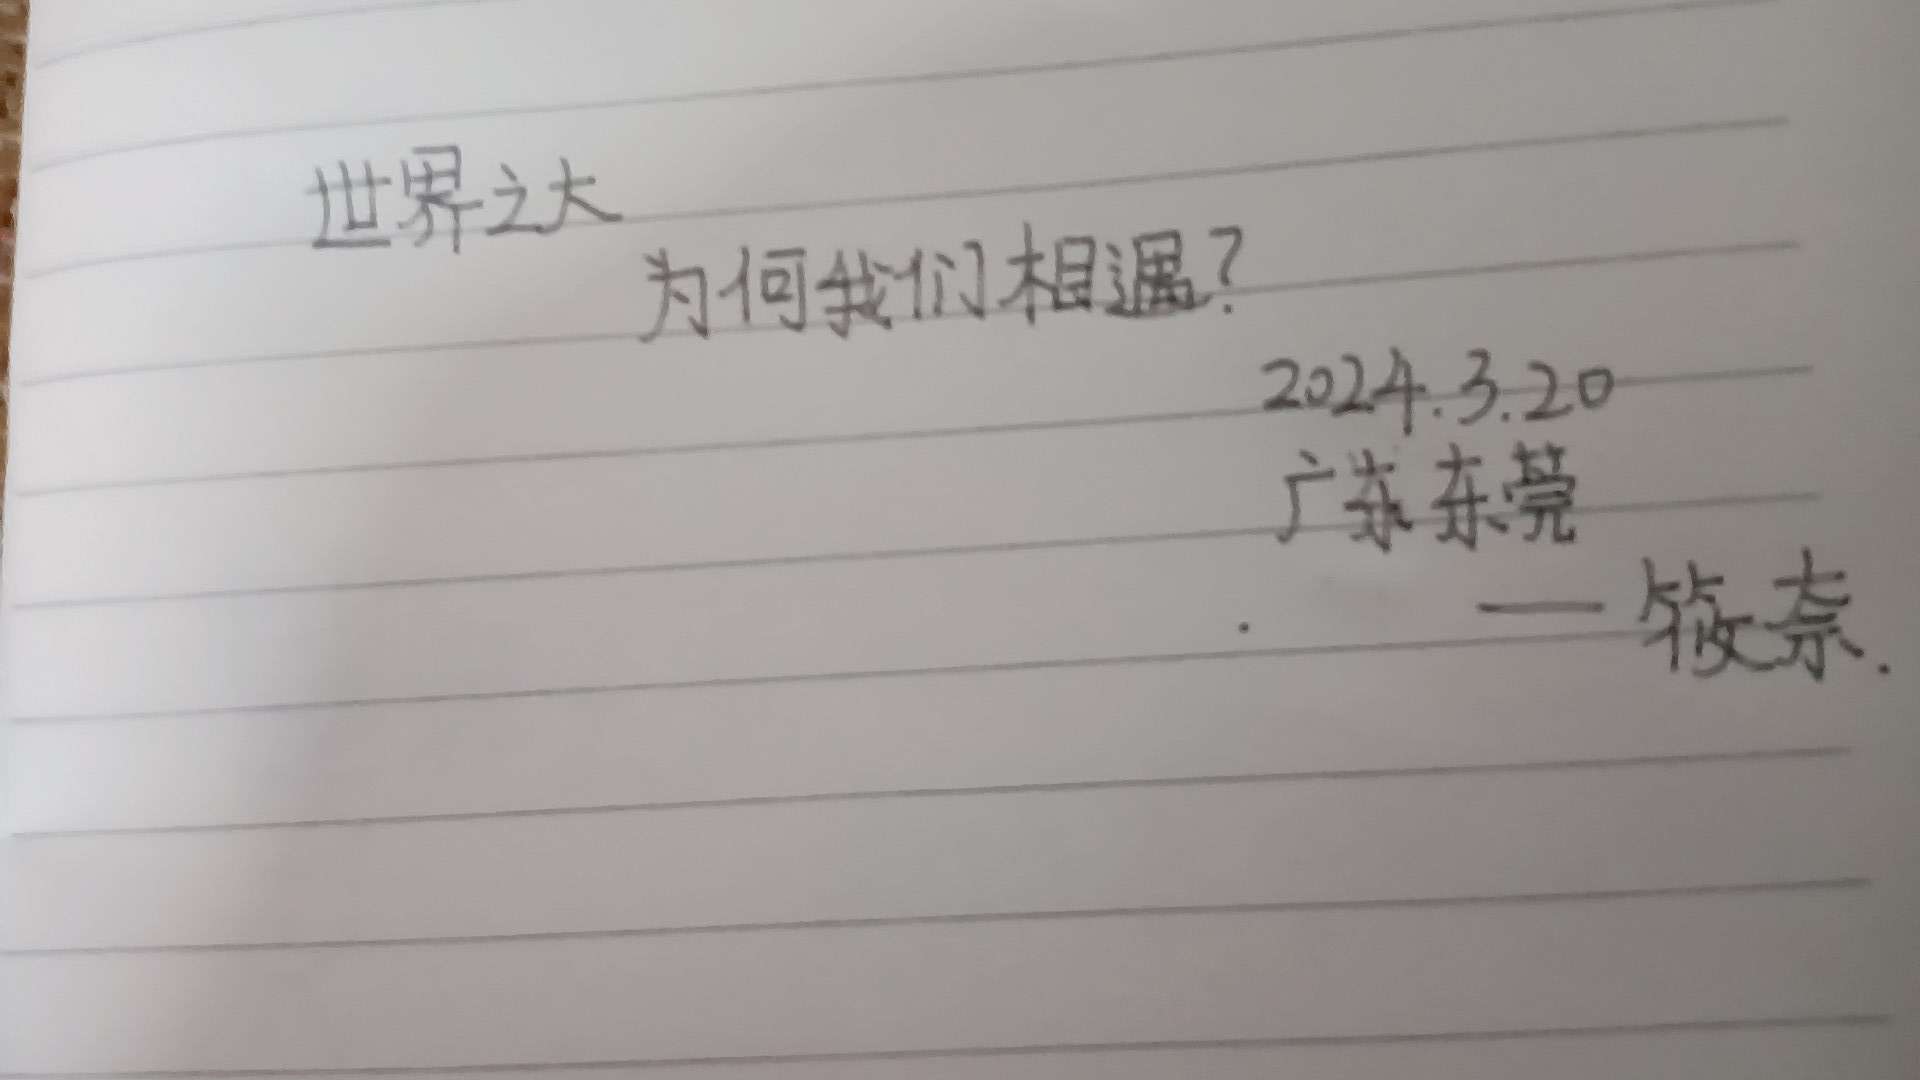 世界之大
为何我们相遇?
2024.3.20
广东东莞
—筱奈.